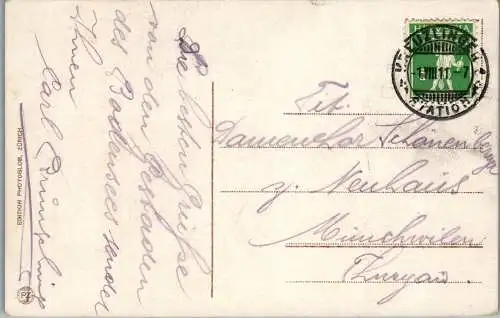 Die besten Grüsse
von den Gestaden
des Bodensees sendet
Ihnen
Carl
EDITION PHOTOGLOB, ZÜRICH
PZ
KREUZLINGEN
-1.VIII.11.-7
STATION
Tit.
Damenchor Schönen
berge
z. Neuhaus
Münchwilen
Thurgau.